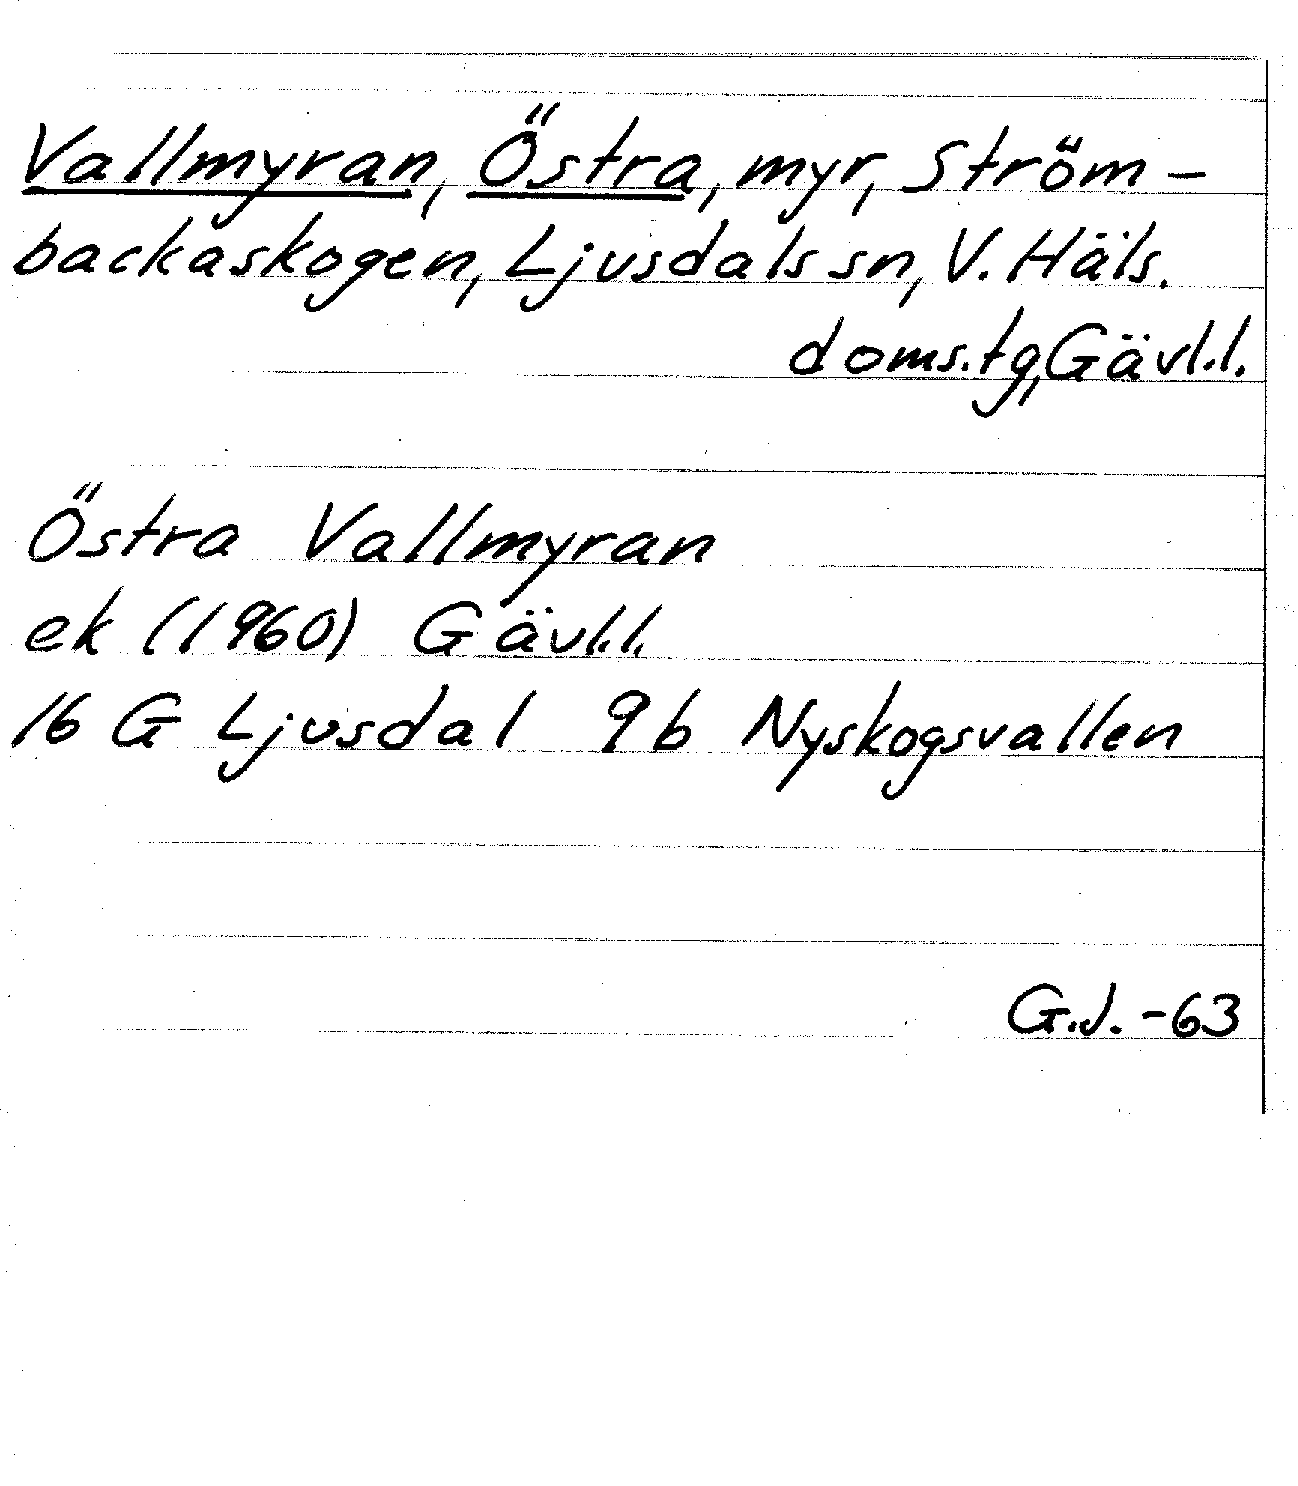 Vallmyran, Östra, myr, Ström-
backaskogen, Ljusdals sn, V. Häls.
doms.tg, Gävl.l.
Östra Vallmyran
ek (1960) Gävl.l.
16 G Ljusdal 9b Nyskogsvallen
G.J. -63